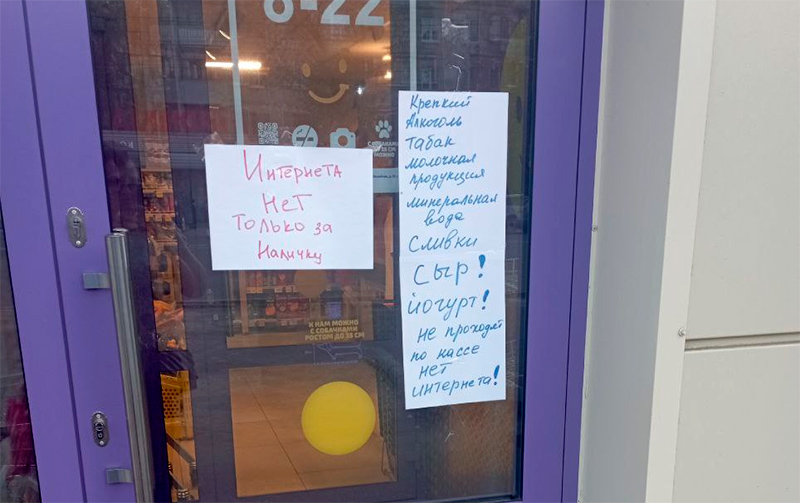 8-22
С СОБАЧКАМИ
ДО 35 СМ
МОЖНО
Интернета
нет
только за
Наличку
Крепкий
Алкоголь
Табак
молочная
продукция
минеральная
вода
сливки
сыр!
йогурт!
не проходят
по кассе
нет
интернета!
К НАМ МОЖНО
С СОБАЧКАМИ
РОСТОМ ДО 35 СМ